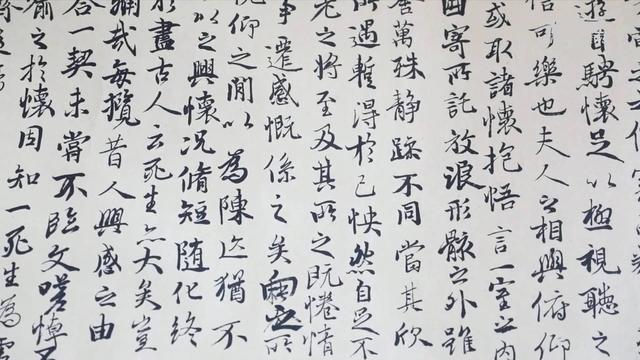 遊目騁懷足以極視聽之
信可樂也夫人之相與俯仰
或取諸懷抱悟言一室之内
因寄所託放浪形骸之外雖
萬殊静躁不同當其欣
所遇蹔得於己怏然自足不
老之將至及其所之既惓情
事遷感慨係之矣向之所
俛仰之閒以為陳迹猶不
以之興懷况脩短随化終
於盡古人云死生亦大矣豈
痛哉每攬昔人興感之由
合一契未嘗不臨文嗟悼不
喻之於懷固知一死生為